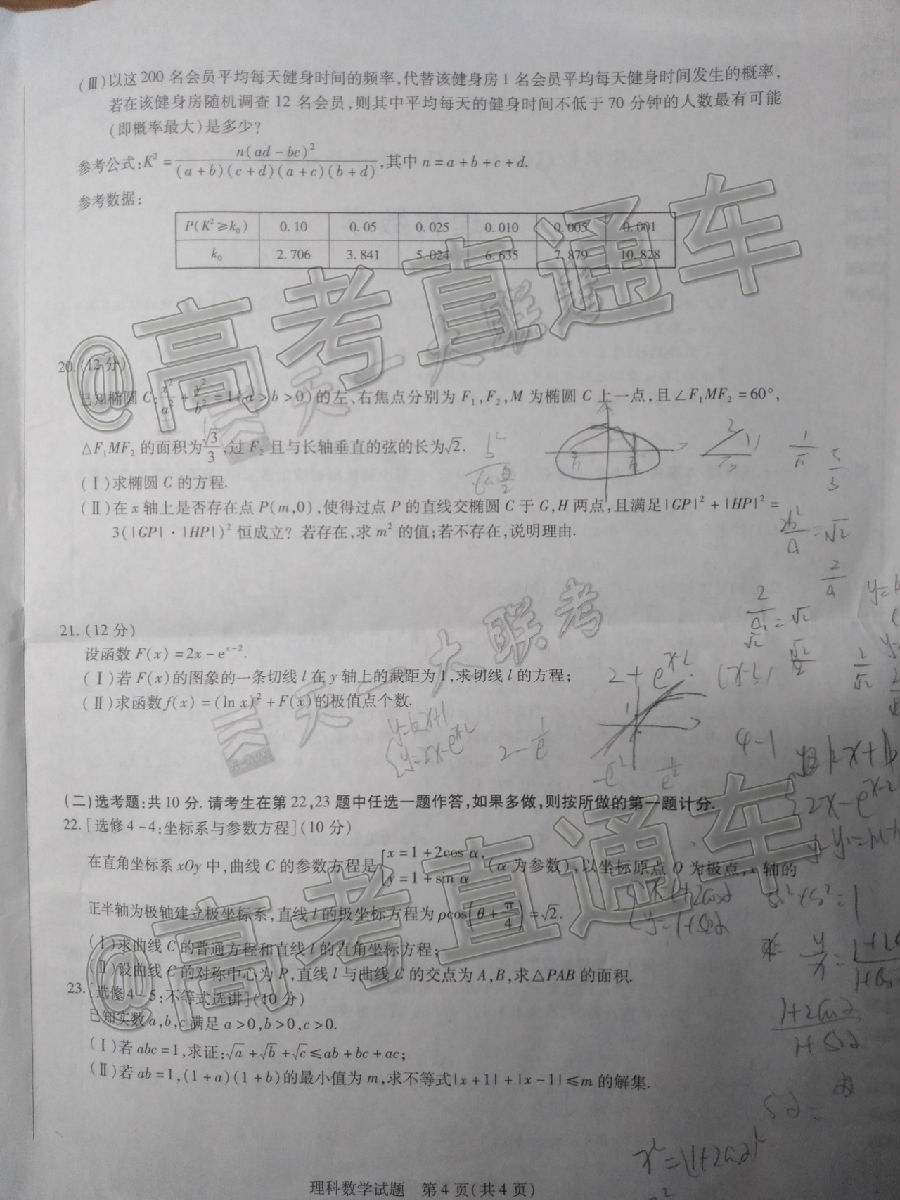 (Ⅲ)以这200名会员平均每天健身时间的频率,代替该健身房1名会员平均每天健身时间发生的概率,
若在该健身房随机调查12名会员,则其中平均每天的健身时间不低于70分钟的人数最有可能
(即概率最大)是多少?
参考公式:K²=n(ad-bc)²/(a+b)(c+d)(a+c)(b+d),其中n=a+b+c+d.
参考数据:
P(K²≥k₀) 0.10 0.05 0.025 0.010 0.005 0.001
k₀ 2.706 3.841 5.024 6.635 7.879 10.828
@高考直通车
天一大联考
20.(12分)
已知椭圆C:x²/a²+y²/b²=1(a>b>0)的左、右焦点分别为F₁,F₂,M为椭圆C上一点,且∠F₁MF₂=60°,
△F₁MF₂的面积为√3/3,过F₂且与长轴垂直的弦的长为√2.
(Ⅰ)求椭圆C的方程.
(Ⅱ)在x轴上是否存在点P(m,0),使得过点P的直线交椭圆C于G,H两点,且满足|GP|²+|HP|²=
3(|GP|·|HP|)²恒成立?若存在,求m²的值;若不存在,说明理由.
2b²/a=√2
天一大联考
21.(12分)
设函数F(x)=2x-eˣ⁻².
(Ⅰ)若F(x)的图象的一条切线l在y轴上的截距为1,求切线l的方程;
(Ⅱ)求函数f(x)=(ln x)²+F(x)的极值点个数.
2-1/e
4-1
(二)选考题:共10分.请考生在第22,23题中任选一题作答,如果多做,则按所做的第一题计分.
22.[选修4-4:坐标系与参数方程](10分)
在直角坐标系xOy中,曲线C的参数方程是{x=1+2cos α, y=1+sin α (α为参数),以坐标原点O为极点,x轴的
正半轴为极轴建立极坐标系,直线l的极坐标方程为ρcos(θ+π/4)=√2.
(Ⅰ)求曲线C的普通方程和直线l的直角坐标方程;
(Ⅱ)设曲线C的对称中心为P,直线l与曲线C的交点为A,B,求△PAB的面积.
@高考直通车
23.[选修4-5:不等式选讲](10分)
已知实数a,b,c满足a>0,b>0,c>0.
(Ⅰ)若abc=1,求证:√a+√b+√c≤ab+bc+ac;
(Ⅱ)若ab=1,(1+a)(1+b)的最小值为m,求不等式|x+1|+|x-1|≤m的解集.
理科数学试题 第4页(共4页)